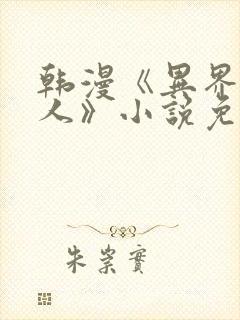 韩漫《異界
人》小説免
朱崇實